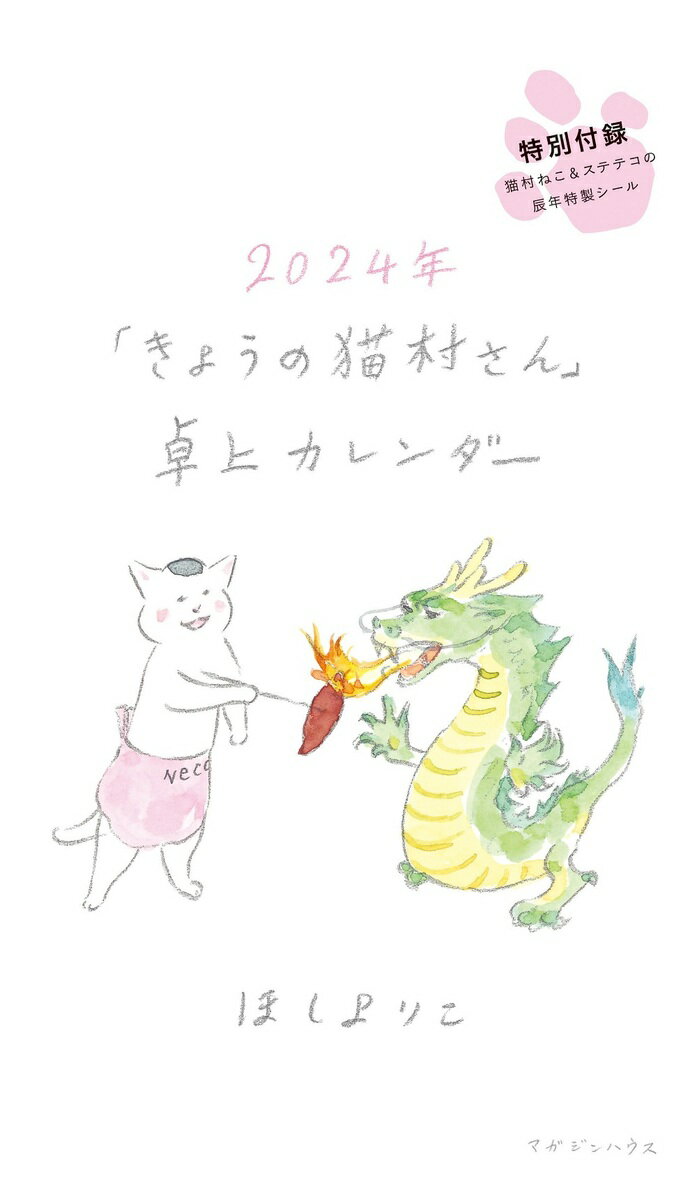 特別付録
猫村ねこ&ステテコの
辰年特製シール
2024年
「きょうの猫村さん」
卓上カレンダー
Neco
ほしよりこ
マガジンハウス